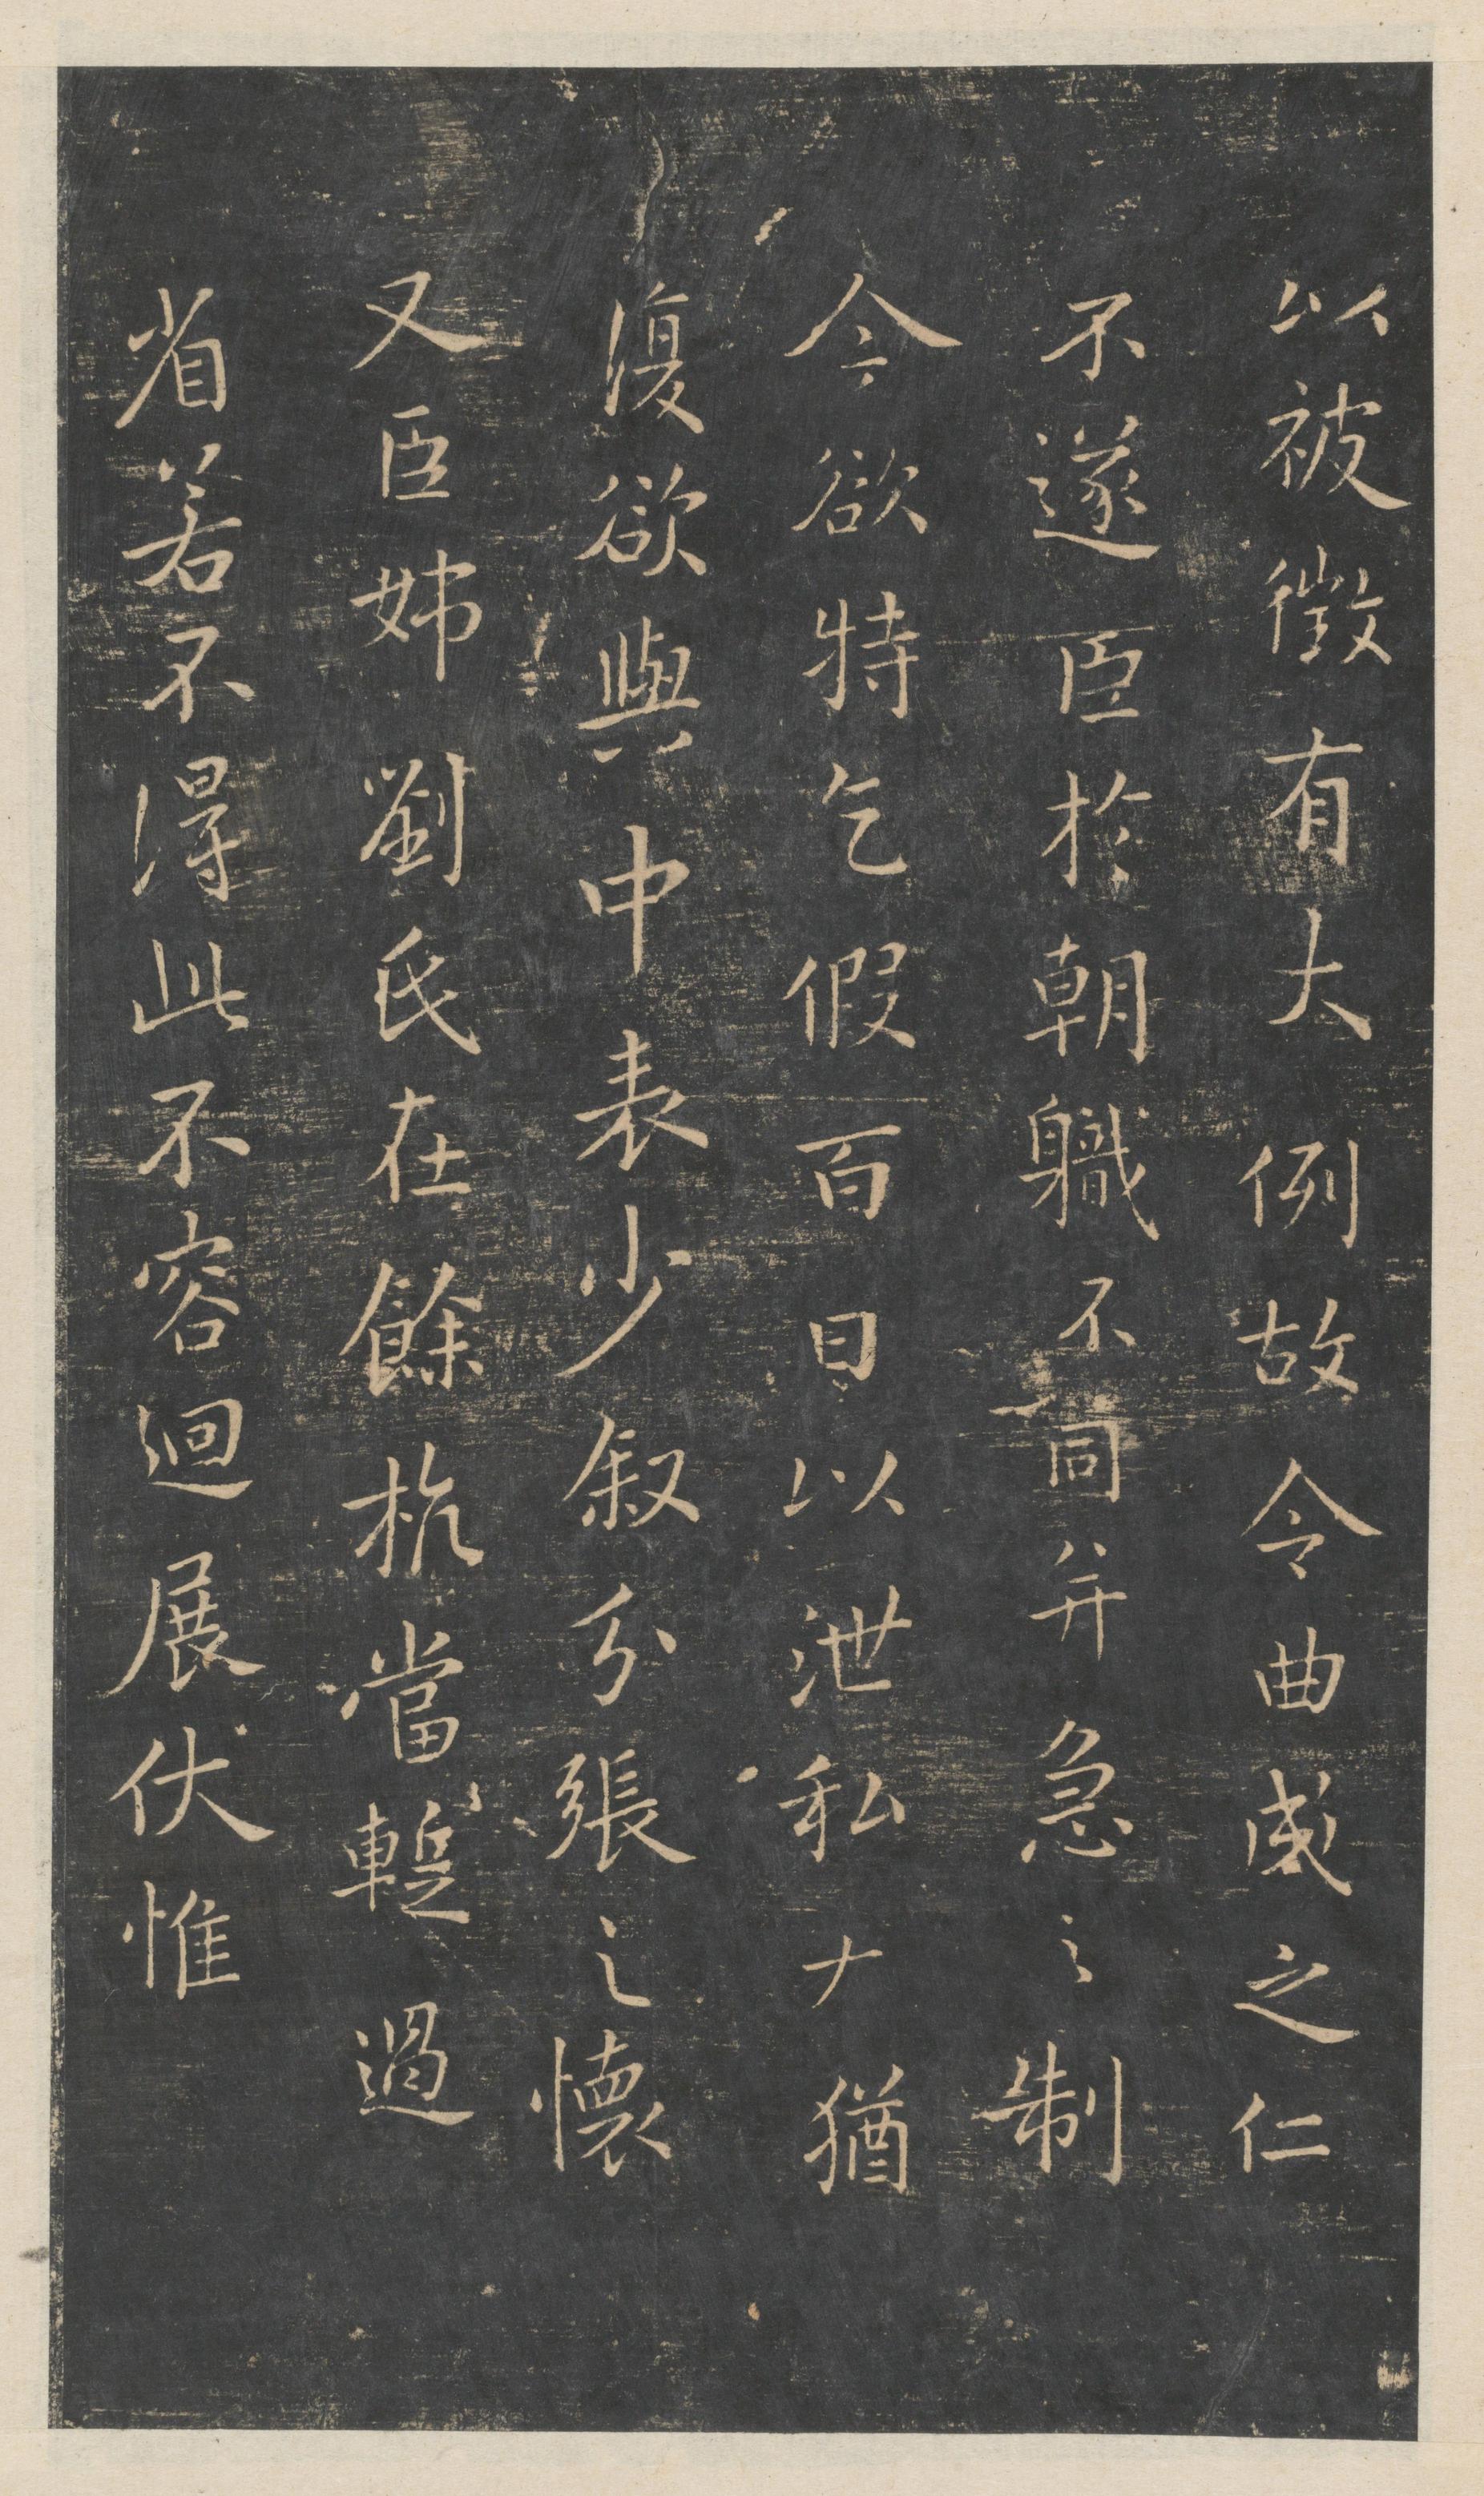 以被徵有大例故令曲成之仁
不遂臣於朝職不同并急之制
今欲特乞假百日以泄私猶
復欲與中表少叙分張之懷
又臣姊劉氏在餘杭當蹔過
省若不得此不容迴展伏惟